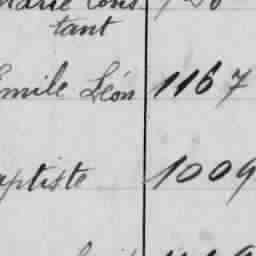 Marie Cons
tant
Emile Léon 1167
aptiste 1009